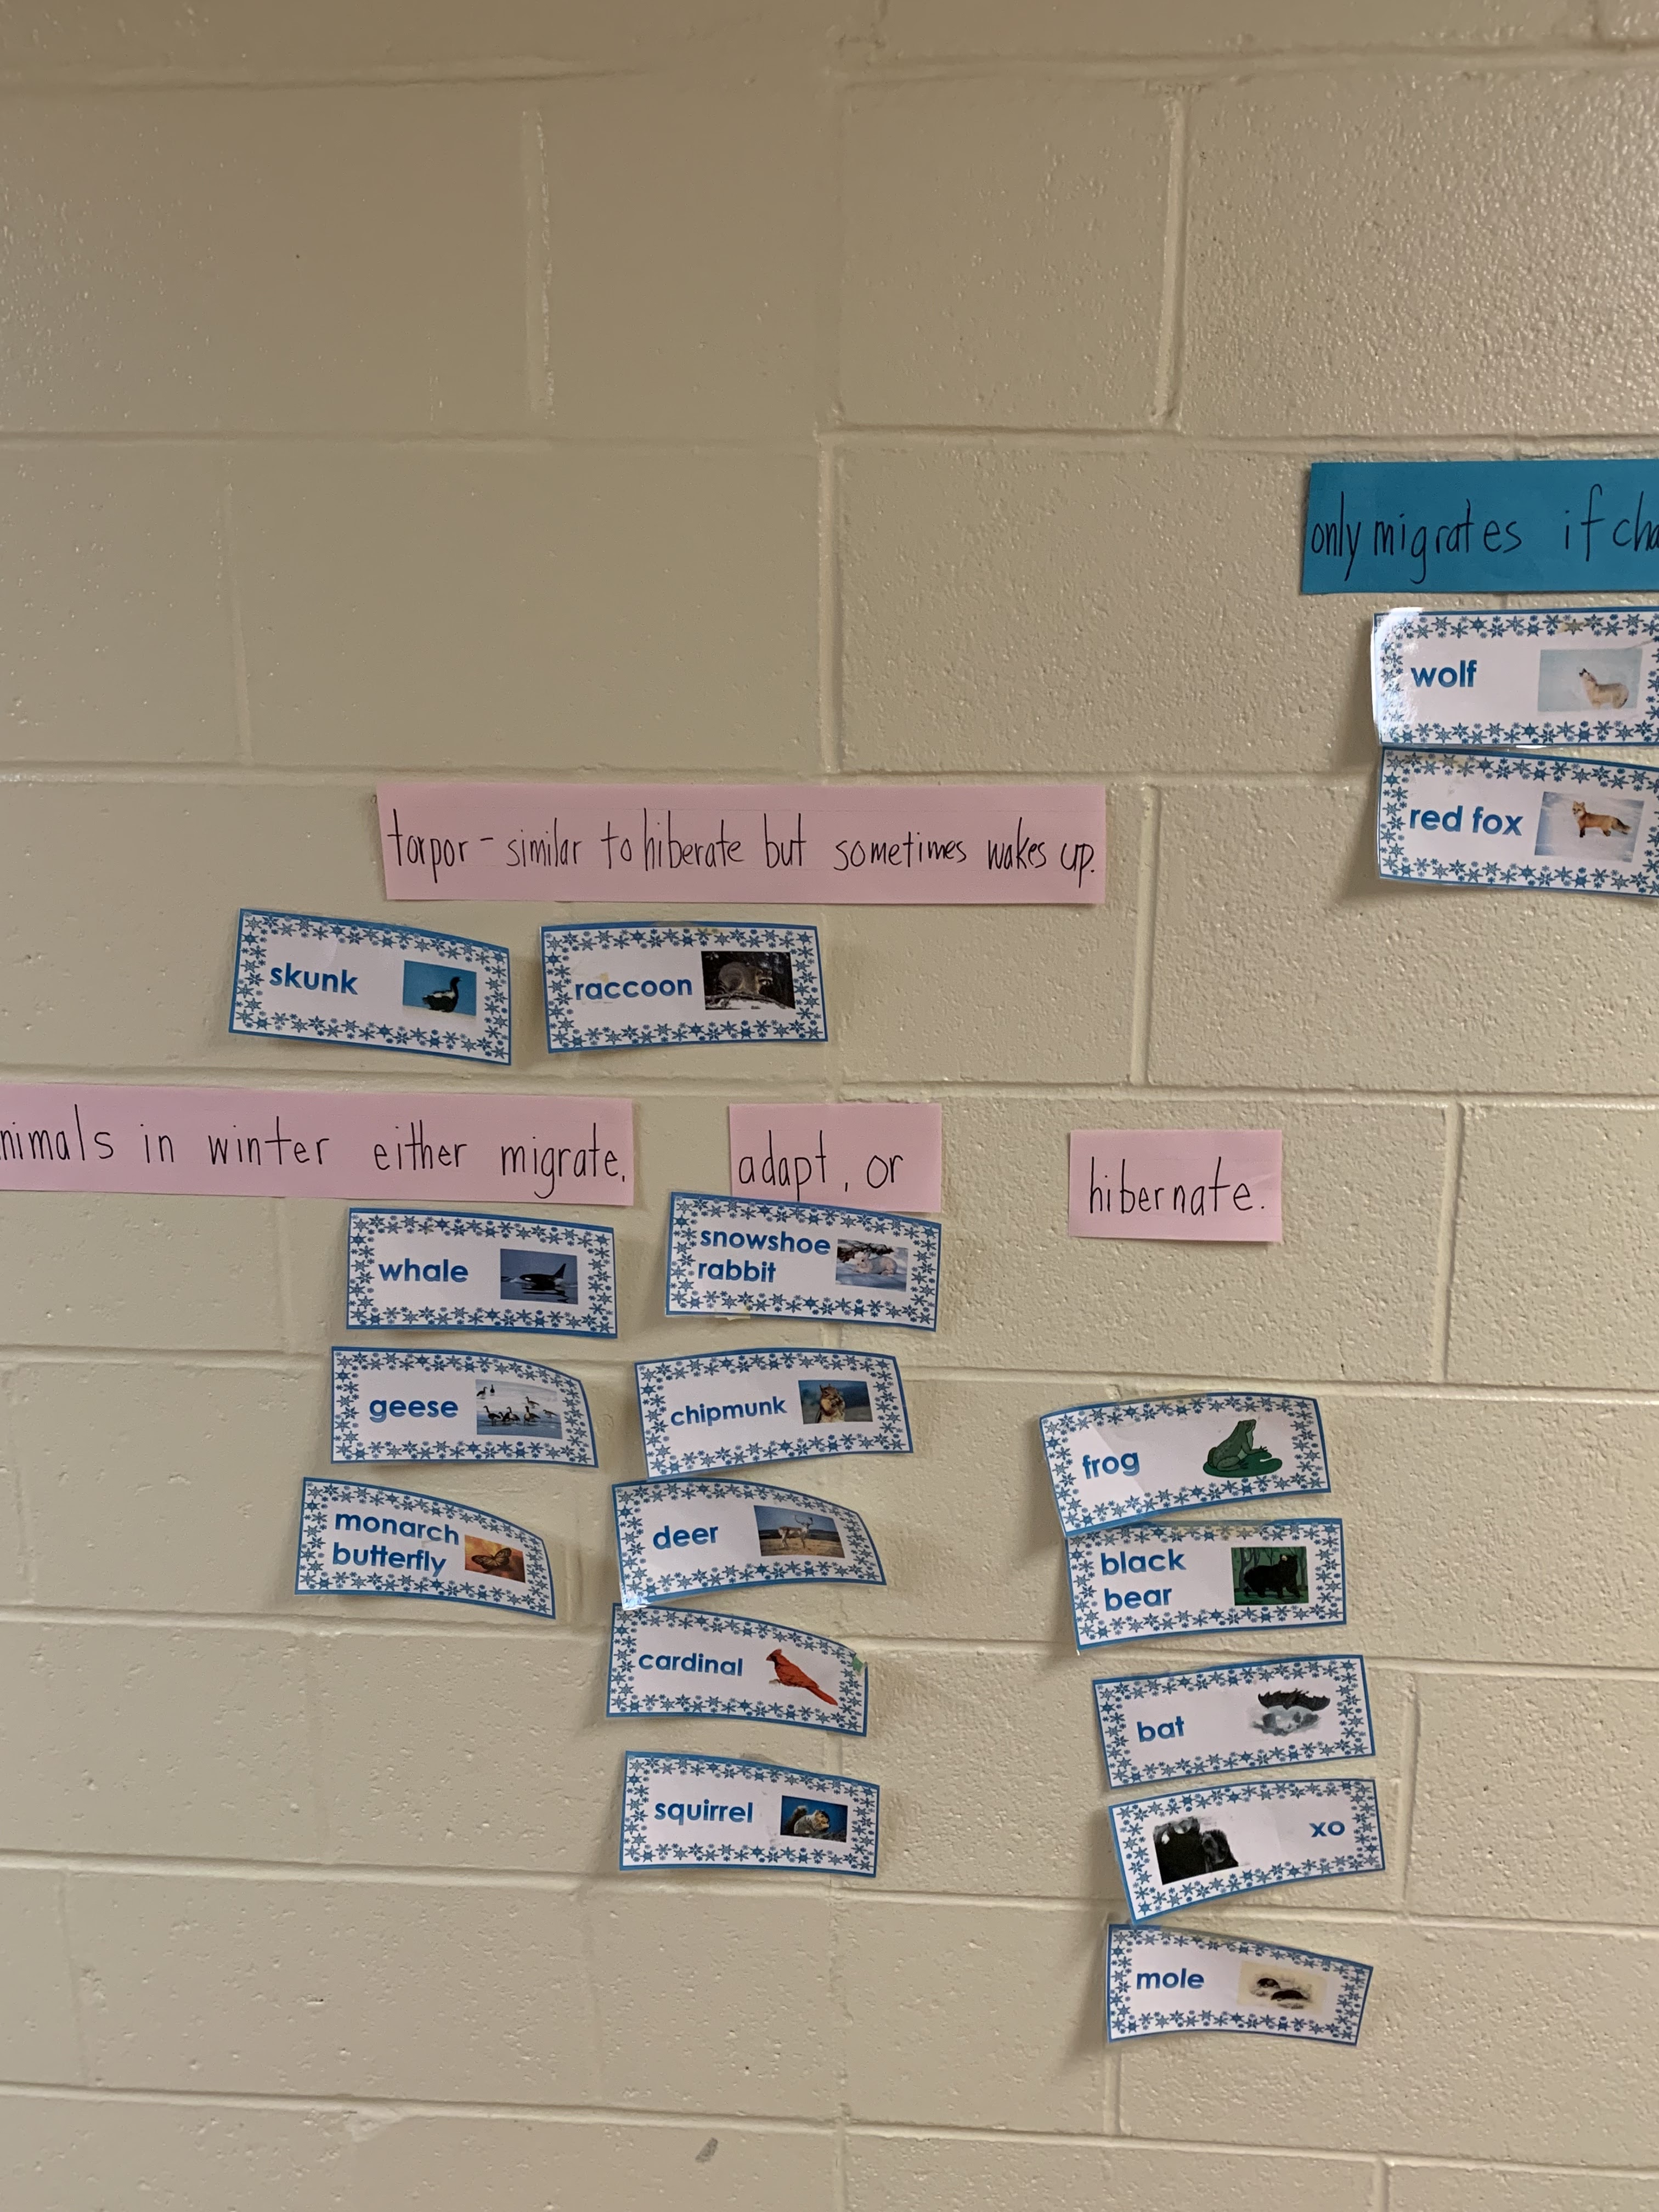 only migrates if cha
wolf
red fox
torpor - similar to hiberate but sometimes wakes up.
skunk
raccoon
nimals in winter either migrate,
adapt, or
hibernate.
whale
geese
monarch
butterfly
snowshoe
rabbit
chipmunk
deer
cardinal
squirrel
frog
black
bear
bat
xo
mole